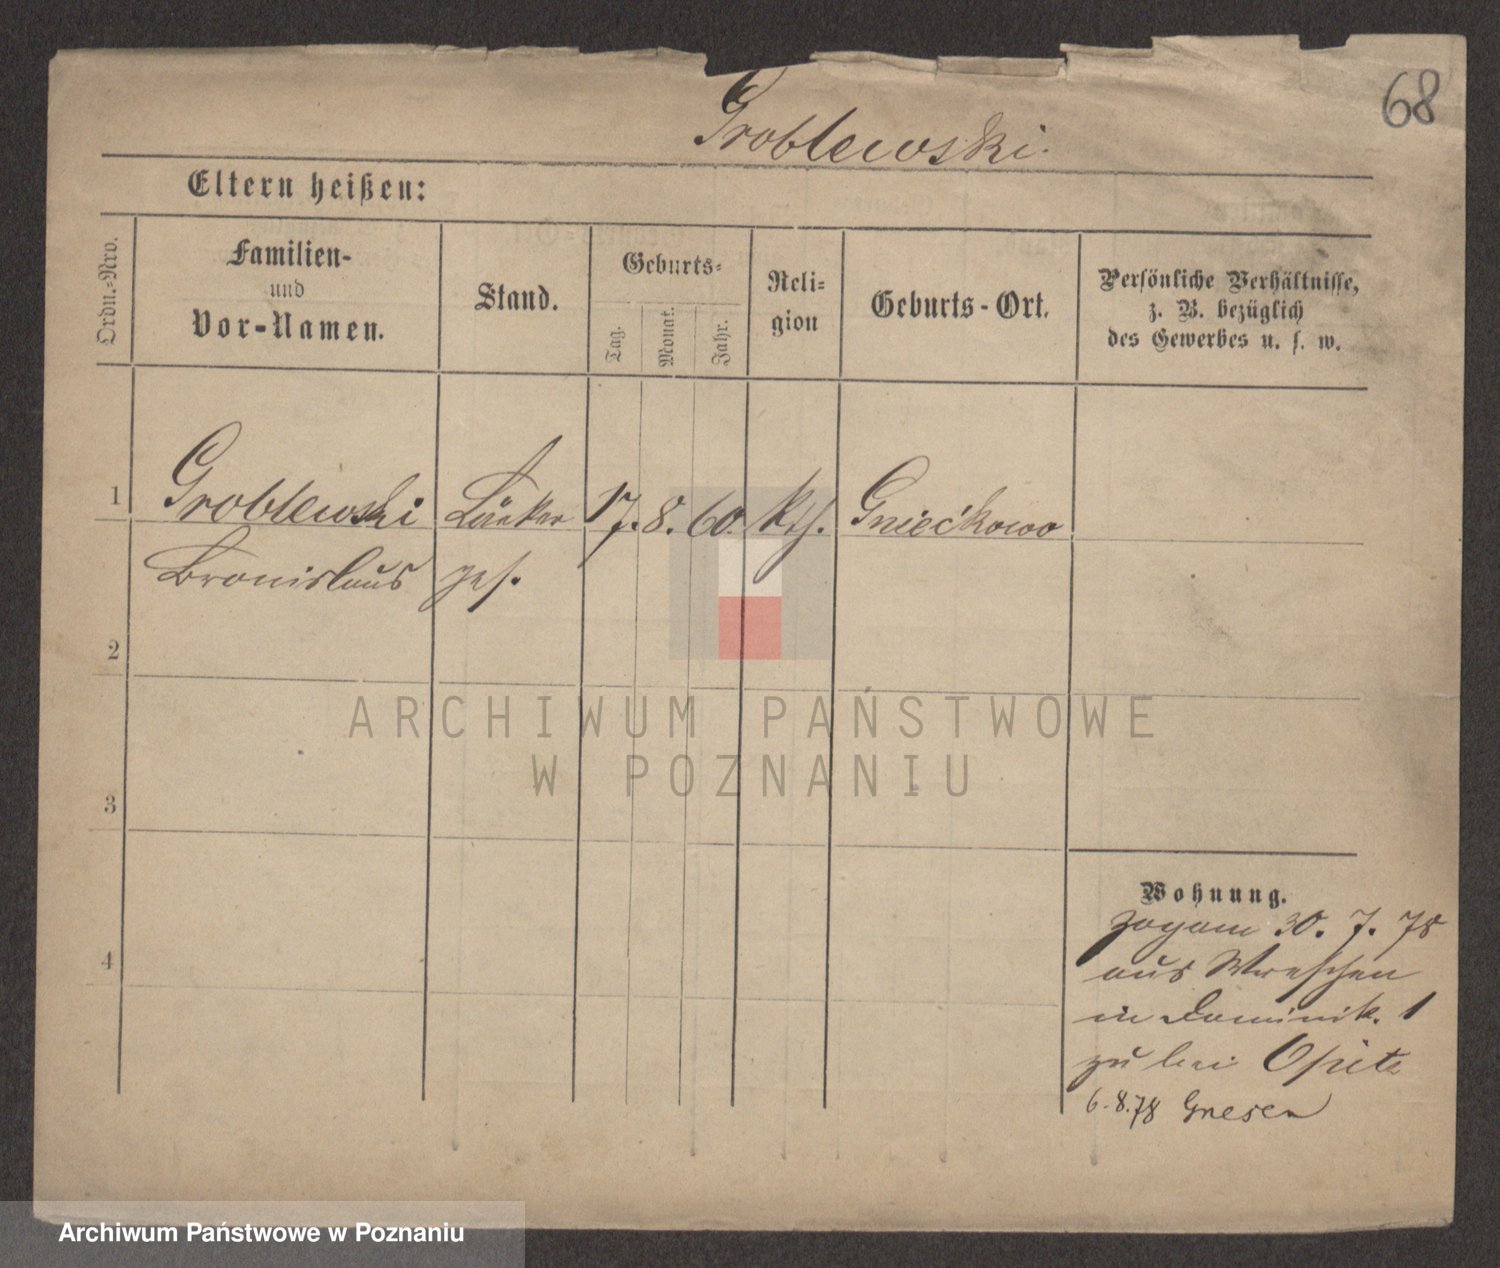 68
Groblewski.
Eltern heißen:
Ordn.-Nro.
Familien-
und
Vor-Namen.
Stand.
Geburts-
Tag.
Monat.
Jahr.
Reli-
gion
Geburts-Ort.
Persönliche Verhältnisse,
z. B. bezüglich
des Gewerbes u. s. w.
1 Groblewski Bäcker 17. 8. 60. kth. Gniećkowo
Bronislaus ges.
2
3
4
Wohnung.
zogam 30. 7. 78
aus Wreschen
in Dominik. 1
zu bei Opitz
6.8.78 Gnesen
ARCHIWUM PAŃSTWOWE
W POZNANIU
Archiwum Państwowe w Poznaniu